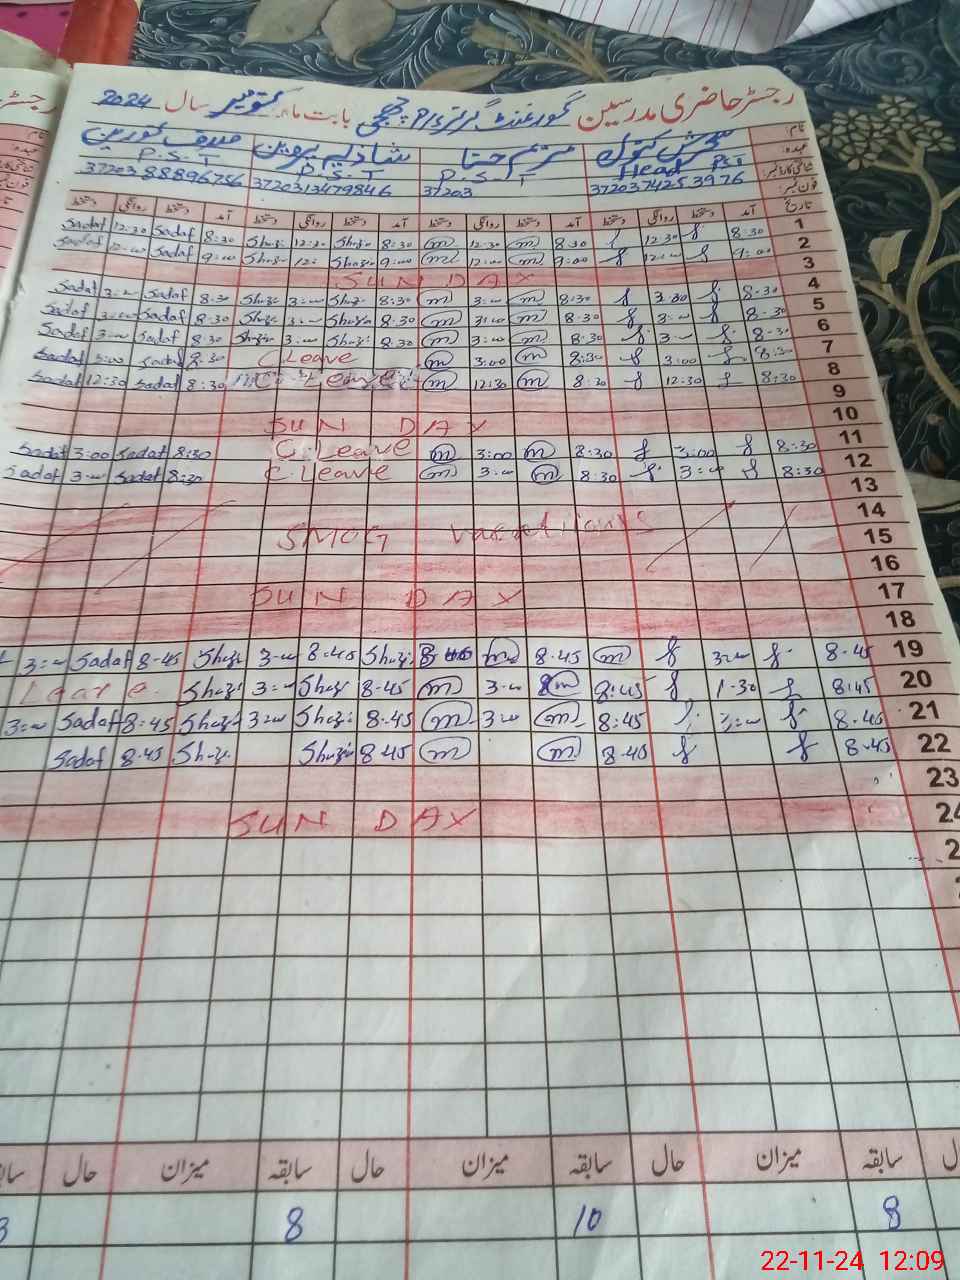 رجسٹر حاضری مدرسین گورنمنٹ گرلز بابت ماہ سال 2024
نام:
P.S.T شازیہ پروین P.S.T Head PST
37203 88896756 3720313479846 37203 3720374253976
تاریخ آمد دستخط روانگی دستخط آمد دستخط روانگی دستخط آمد دستخط روانگی دستخط آمد دستخط روانگی دستخط
Sadaf 12:30 Sadaf 8:30 Shazi 12:30 Shazi 8:30 m 12:30 m 8:30 12:30 8:30 1
Sadaf 12:00 Sadaf 9:00 Shazi 12: Shazi 9:00 m 12:00 m 9:00 12:00 9:00 2
SUN DAY 3
Sadaf 3:00 Sadaf 8:30 Shazi 3:00 Shazi 8:30 m 3:00 m 8:30 3:00 8:30 4
Sadaf 3:00 Sadaf 8:30 Shazi 3:00 Shazi 8:30 m 3:00 m 8:30 3:00 8:30 5
Sadaf 3:00 Sadaf 8:30 Shazi 3:00 Shazi 8:30 m 3:00 m 8:30 3:00 8:30 6
Sadaf 3:00 Sadaf 8:30 C Leave m 3:00 m 8:30 3:00 8:30 7
Sadaf 12:30 Sadaf 8:30 C. Leave m 12:30 m 8:30 12:30 8:30 8
9
SUN DAY 10
Sadaf 3:00 Sadaf 8:30 C. Leave m 3:00 m 8:30 3:00 8:30 11
Sadaf 3:00 Sadaf 8:30 C. Leave m 3:00 m 8:30 3:00 8:30 12
13
14
SMOG vacations 15
16
SUN DAY 17
18
3:00 Sadaf 8-45 Shazi 3:00 8:45 Shazi m 8.45 m 3:00 8-45 19
Leave Shazi 3:00 Shazi 8.45 m 3:00 m 8:45 1.30 8:45 20
3:00 Sadaf 8:45 Shazi 3:00 Shazi 8.45 m 3:00 m 8:45 3:00 8.45 21
Sadaf 8.45 Shazi Shazi 8.45 m m 8.40 8.45 22
23
SUN DAY 24
سابقہ میزان حال سابقہ میزان حال سابقہ میزان حال
8 10 8
22-11-24 12:09